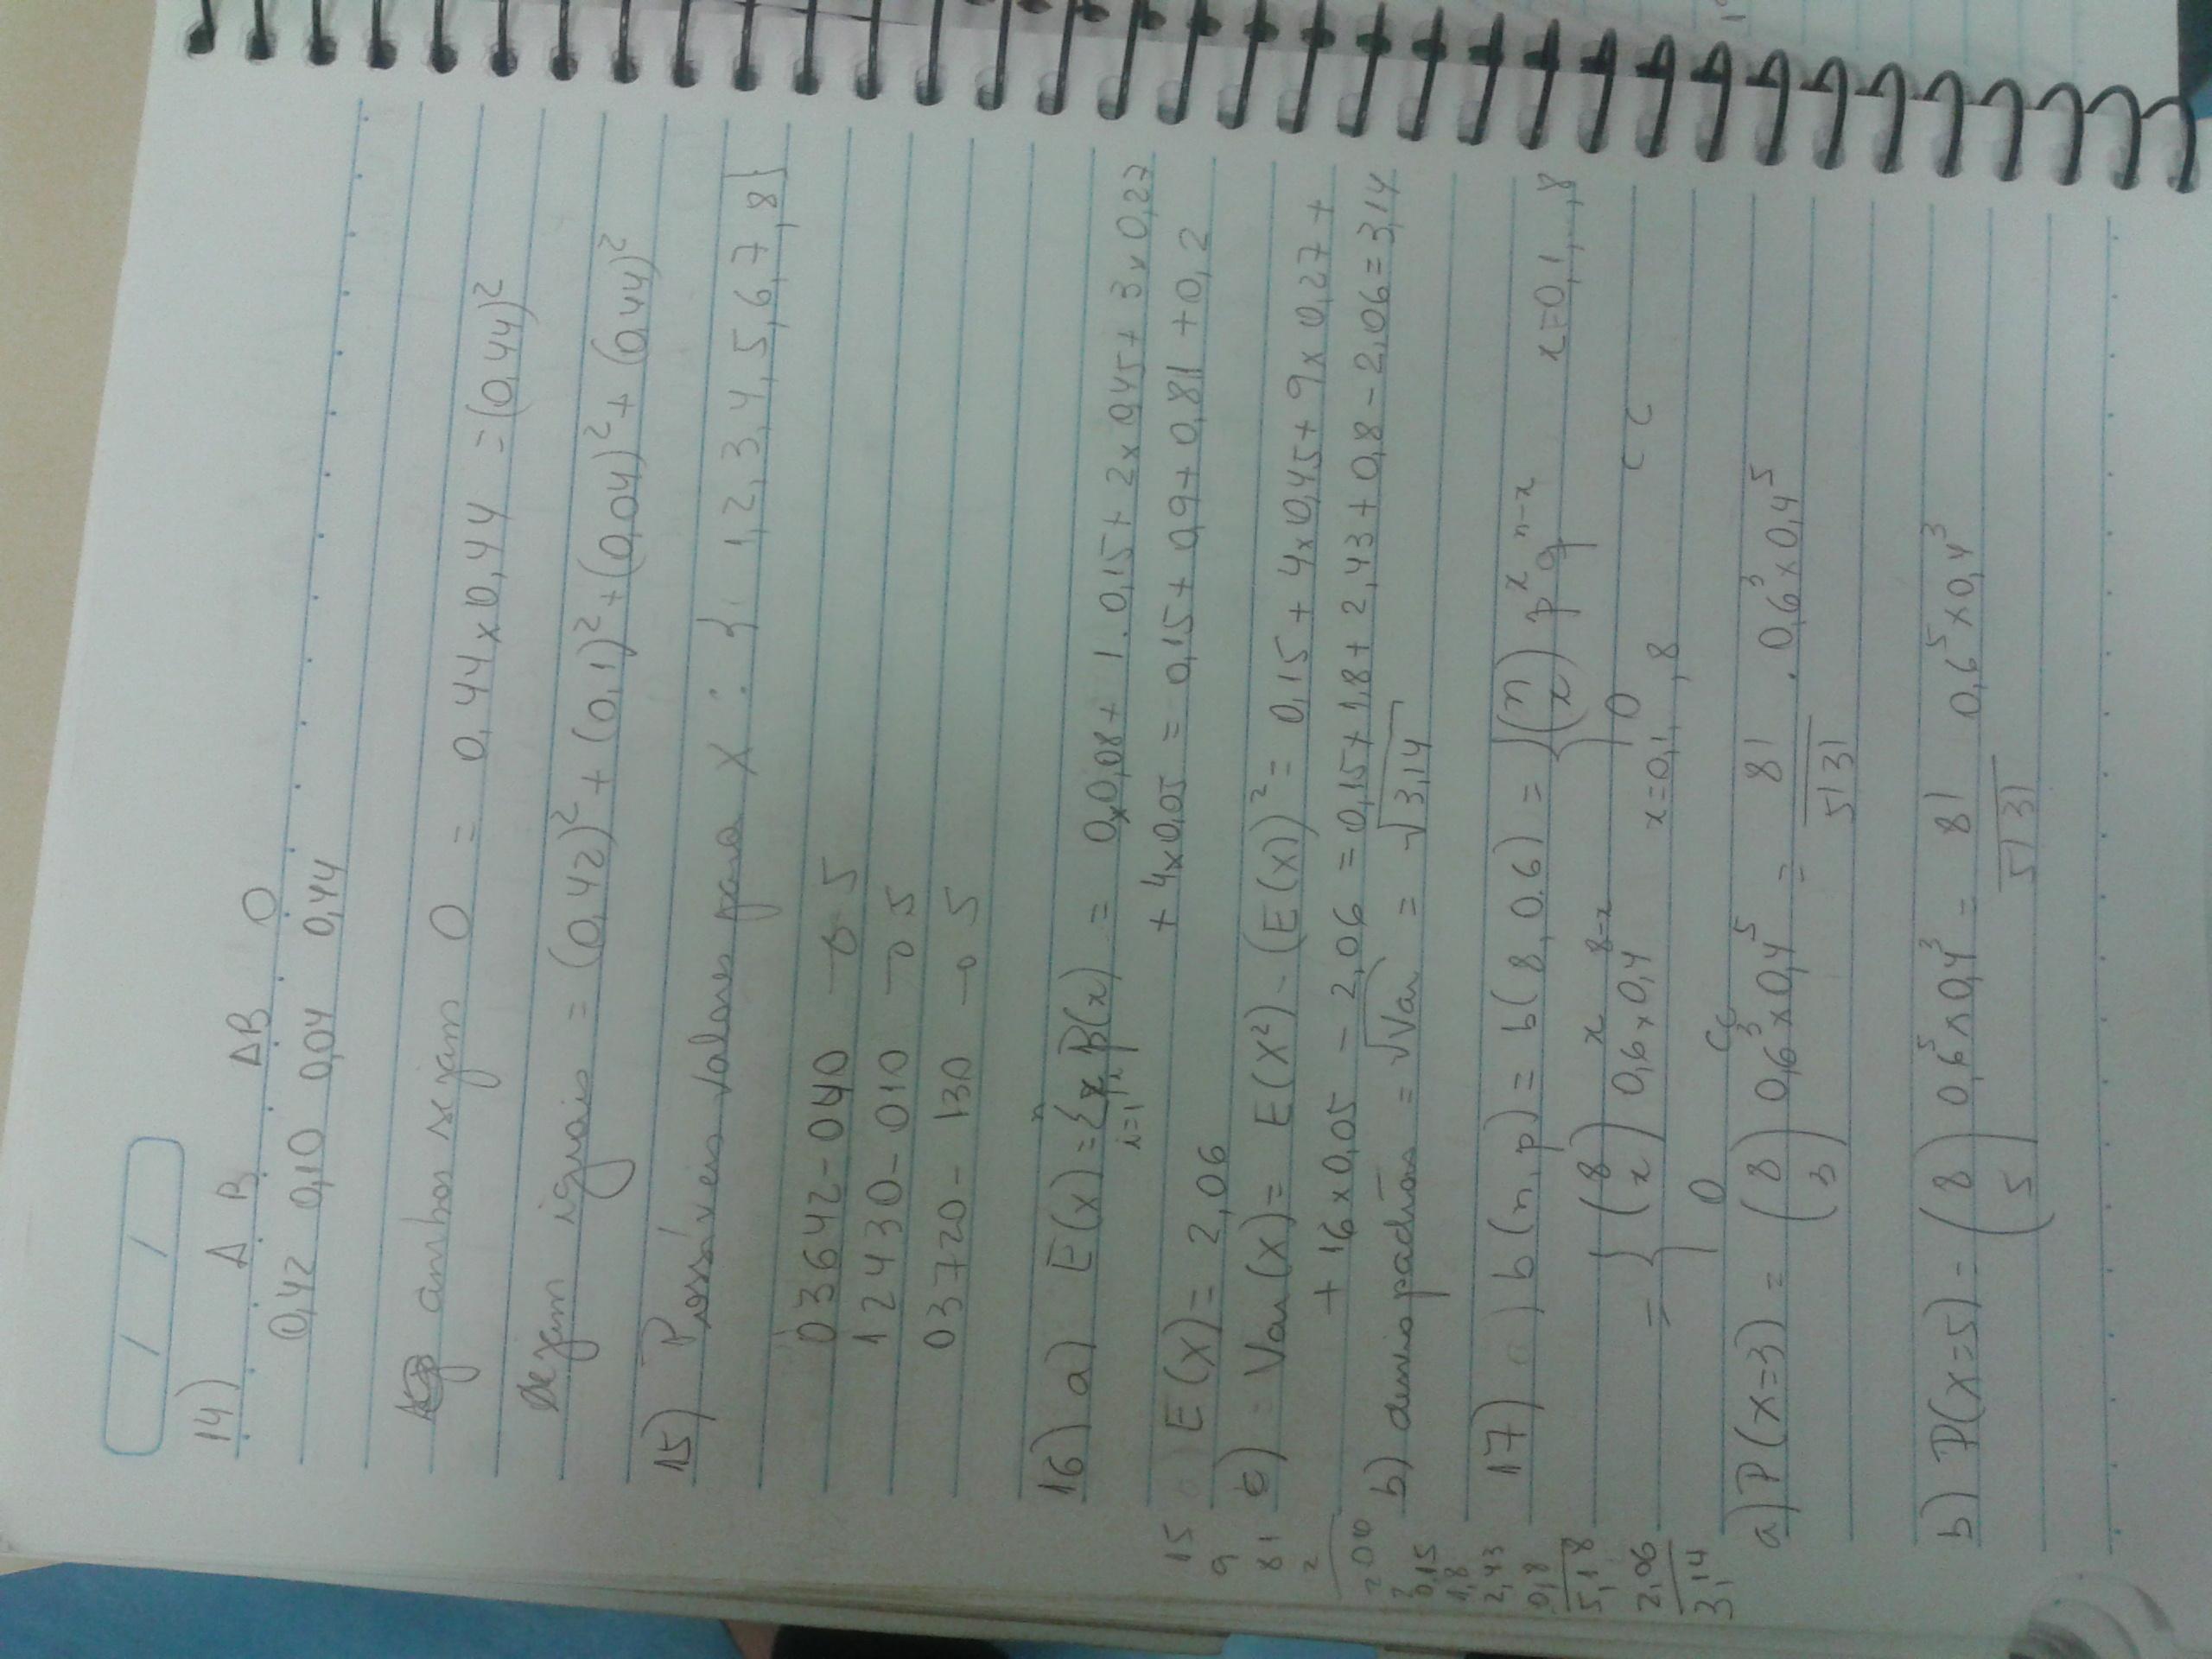 / /
14) A B AB O
0,42 0,10 0,04 0,44
ambos sejam O = 0,44 x 0,44 = (0,44)²
Sejam iguais = (0,42)² + (0,1)² + (0,04)² + (0,44)²
15) Possíveis valores para X : { 1, 2, 3, 4, 5, 6, 7, 8}
03642-040 → 5
12430-010 → 5
03720-130 → 5
16) a) E(x) = Σ x P(x) = 0x0,08 + 1.0,15 + 2x0,45 + 3x0,27
i=1 n
+ 4x0,05 = 0,15 + 0,9 + 0,81 + 0,2
E(x) = 2,06
c) = Var(x) = E(x²) - (E(x))² = 0,15 + 4x0,45 + 9x0,27 +
+ 16x0,05 - 2,06 = 0,15 + 1,8 + 2,43 + 0,8 - 2,06 = 3,14
b) desvio padrão = √Var = √3,14
17) b(n,p) = b(8,0.6) = {(n x) p^x q^n-x x=0,1,..,8
0 cc
= { (8 x) 0,6^x x 0,4^8-x x=0,1,,8
0 cc
a) P(x=3) = (8 3) 0,6³ x 0,4⁵ = 8! . 0,6³ x 0,4⁵
5!3!
b) P(x=5) = (8 5) 0,6⁵ x 0,4³ = 8! 0,6⁵ x 0,4³
5!3!
15
9
81
2
206
0,15
1,8
2,43
0,8
5,18
2,06
3,14